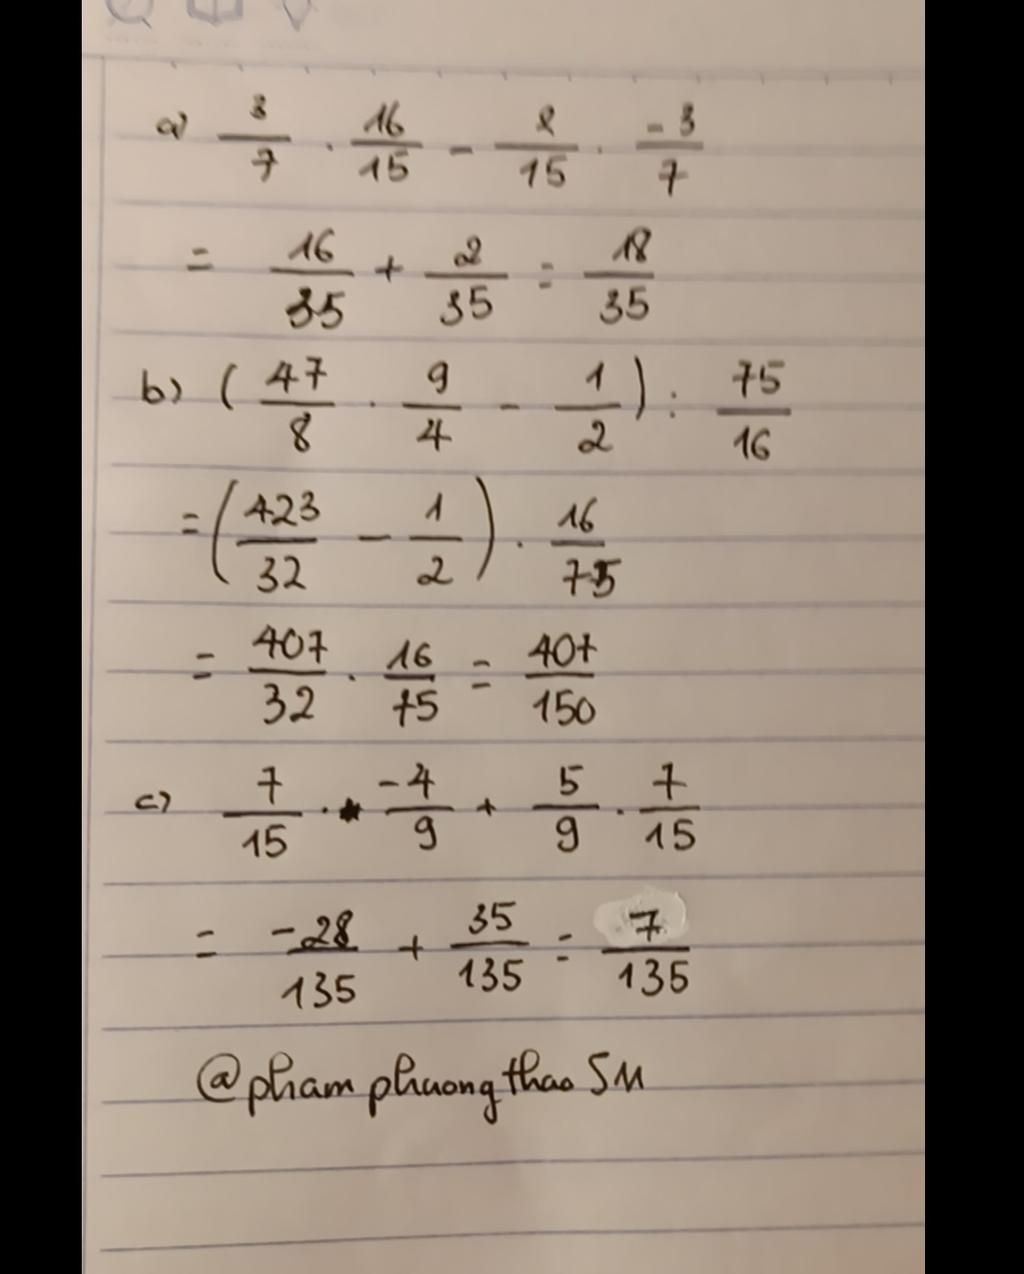 a) 3/7 . 16/15 - 2/15 . -3/7
= 16/35 + 2/35 = 18/35
b) (47/8 . 9/4 - 1/2) : 75/16
= (423/32 - 1/2) . 16/75
= 407/32 . 16/75 = 407/150
c) 7/15 . -4/9 + 5/9 . 7/15
= -28/135 + 35/135 = 7/135
@phamphuongthao5M